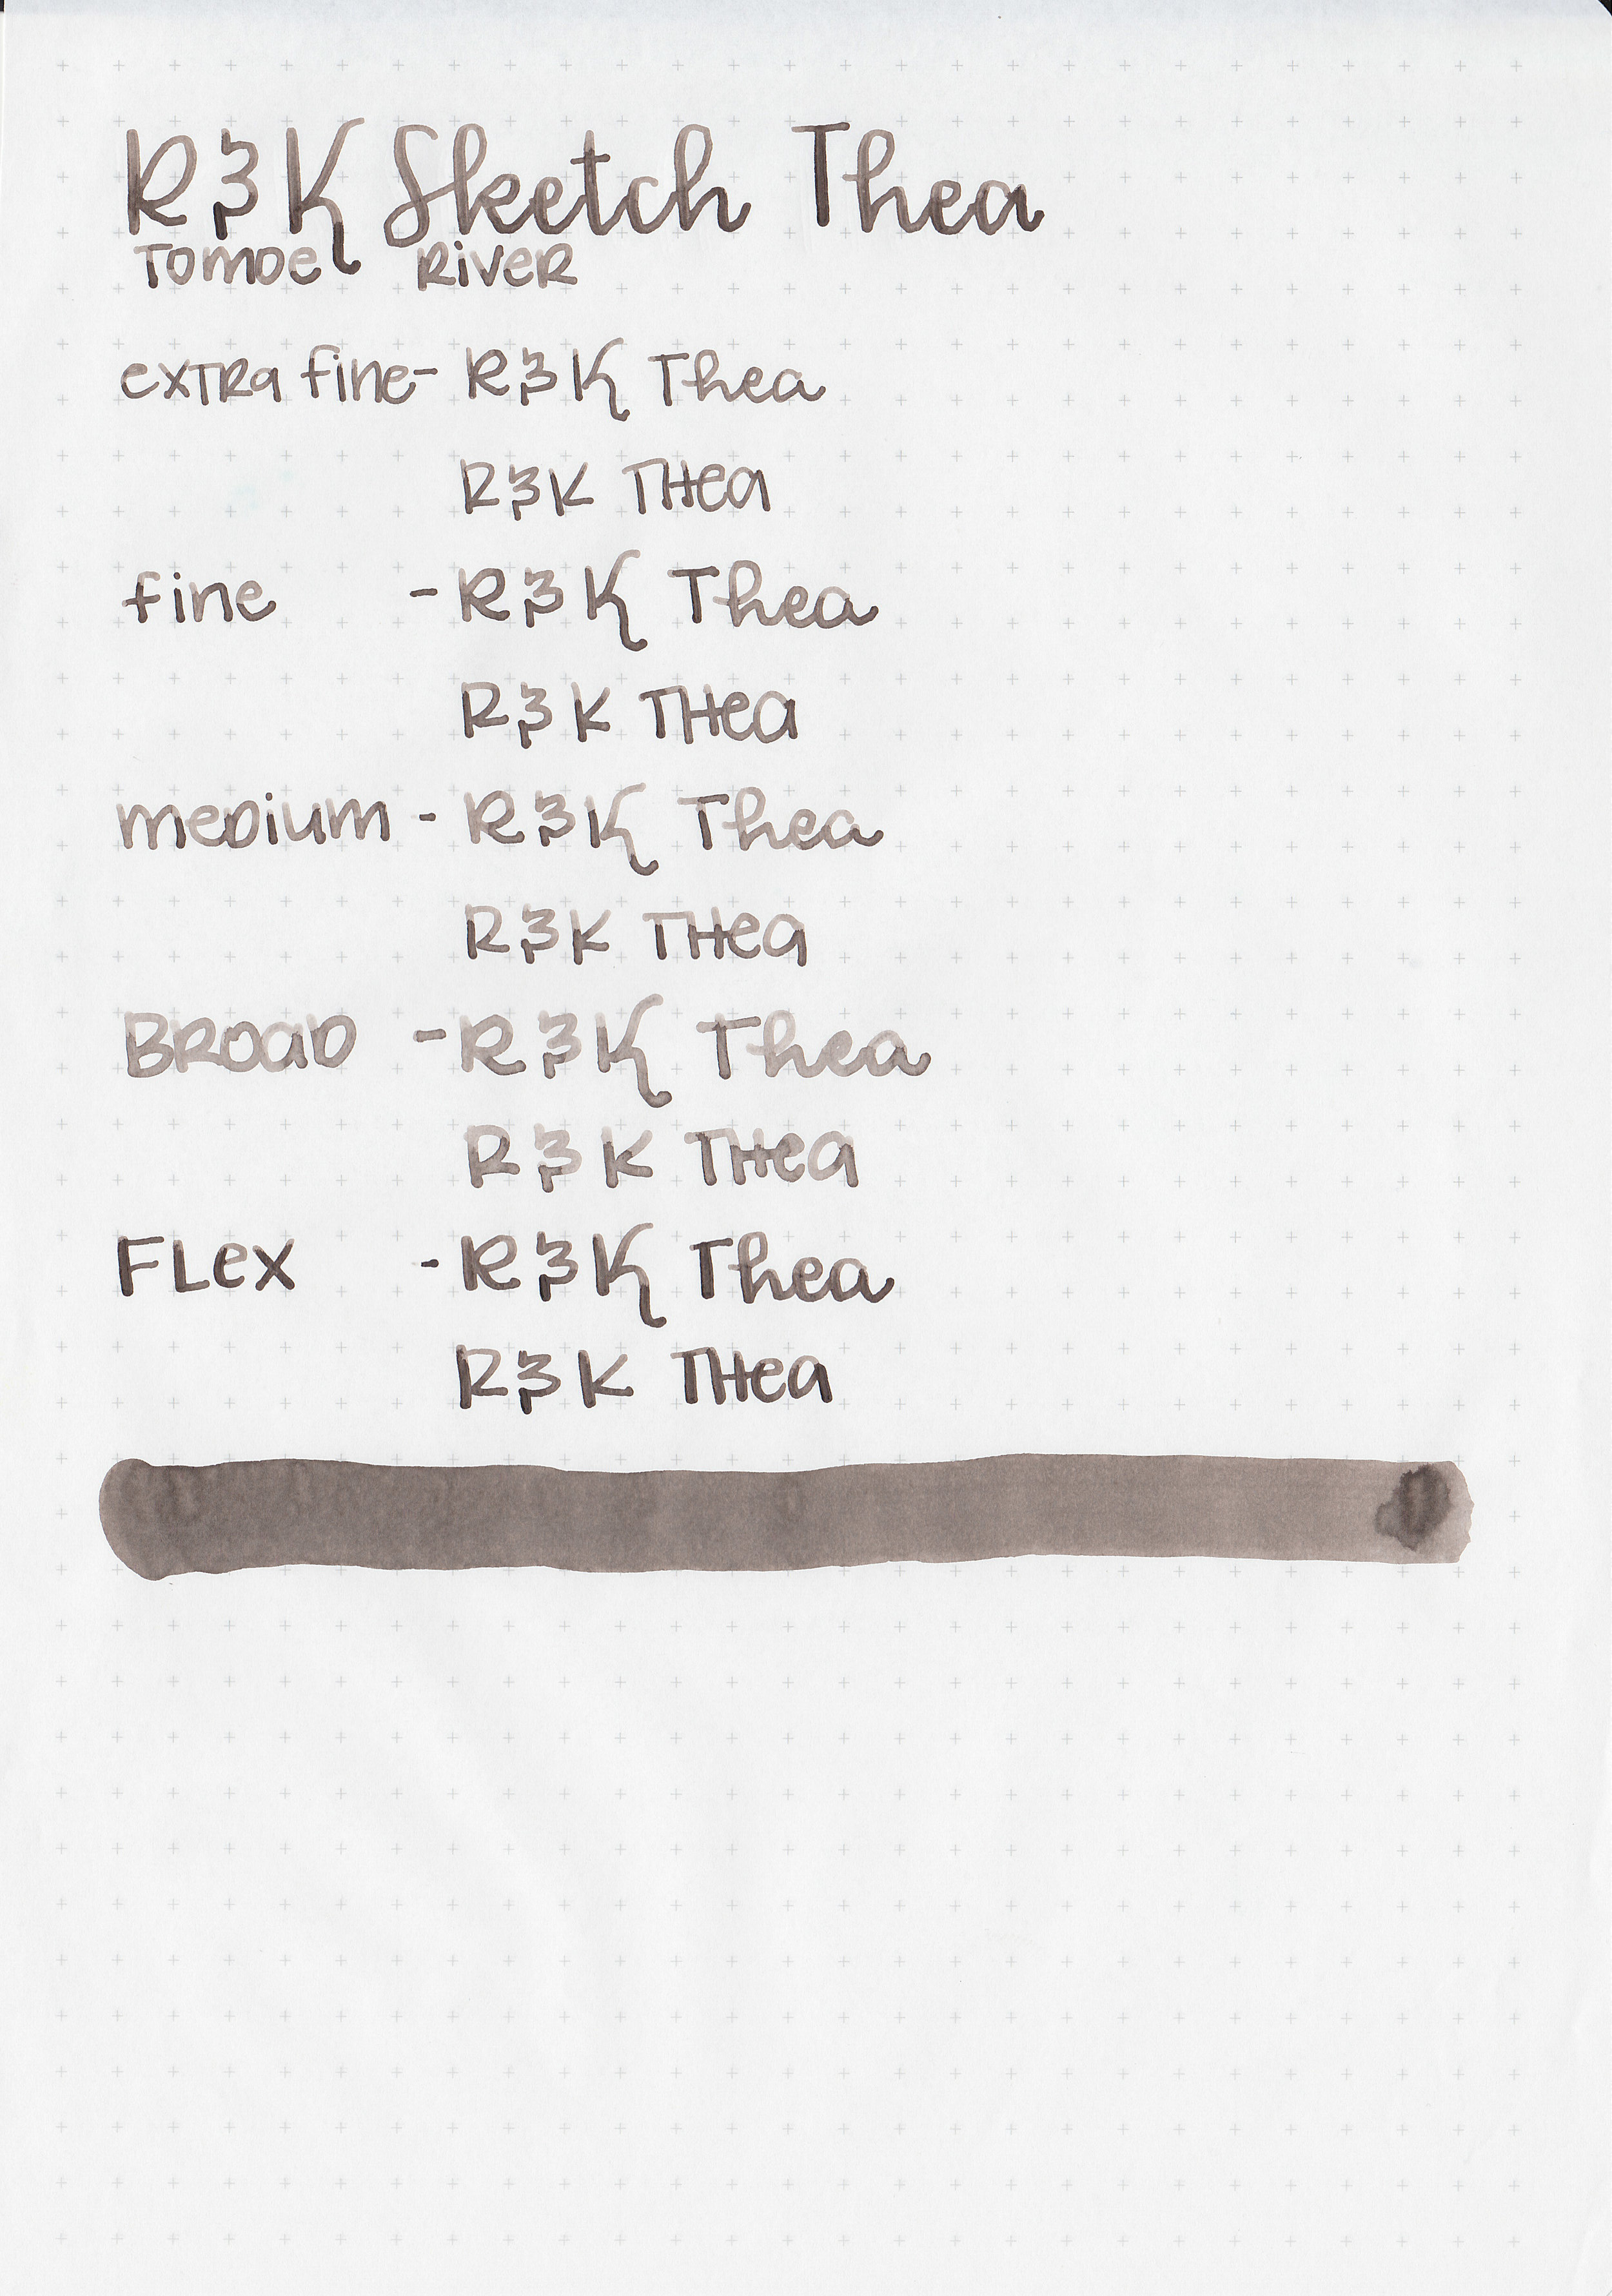 R&K Sketch Thea
Tomoe River
extra fine - R&K Thea
R&K THea
fine - R&K Thea
R&K THea
medium - R&K Thea
R&K THea
Broad - R&K Thea
R&K THea
FLex - R&K Thea
R&K THea